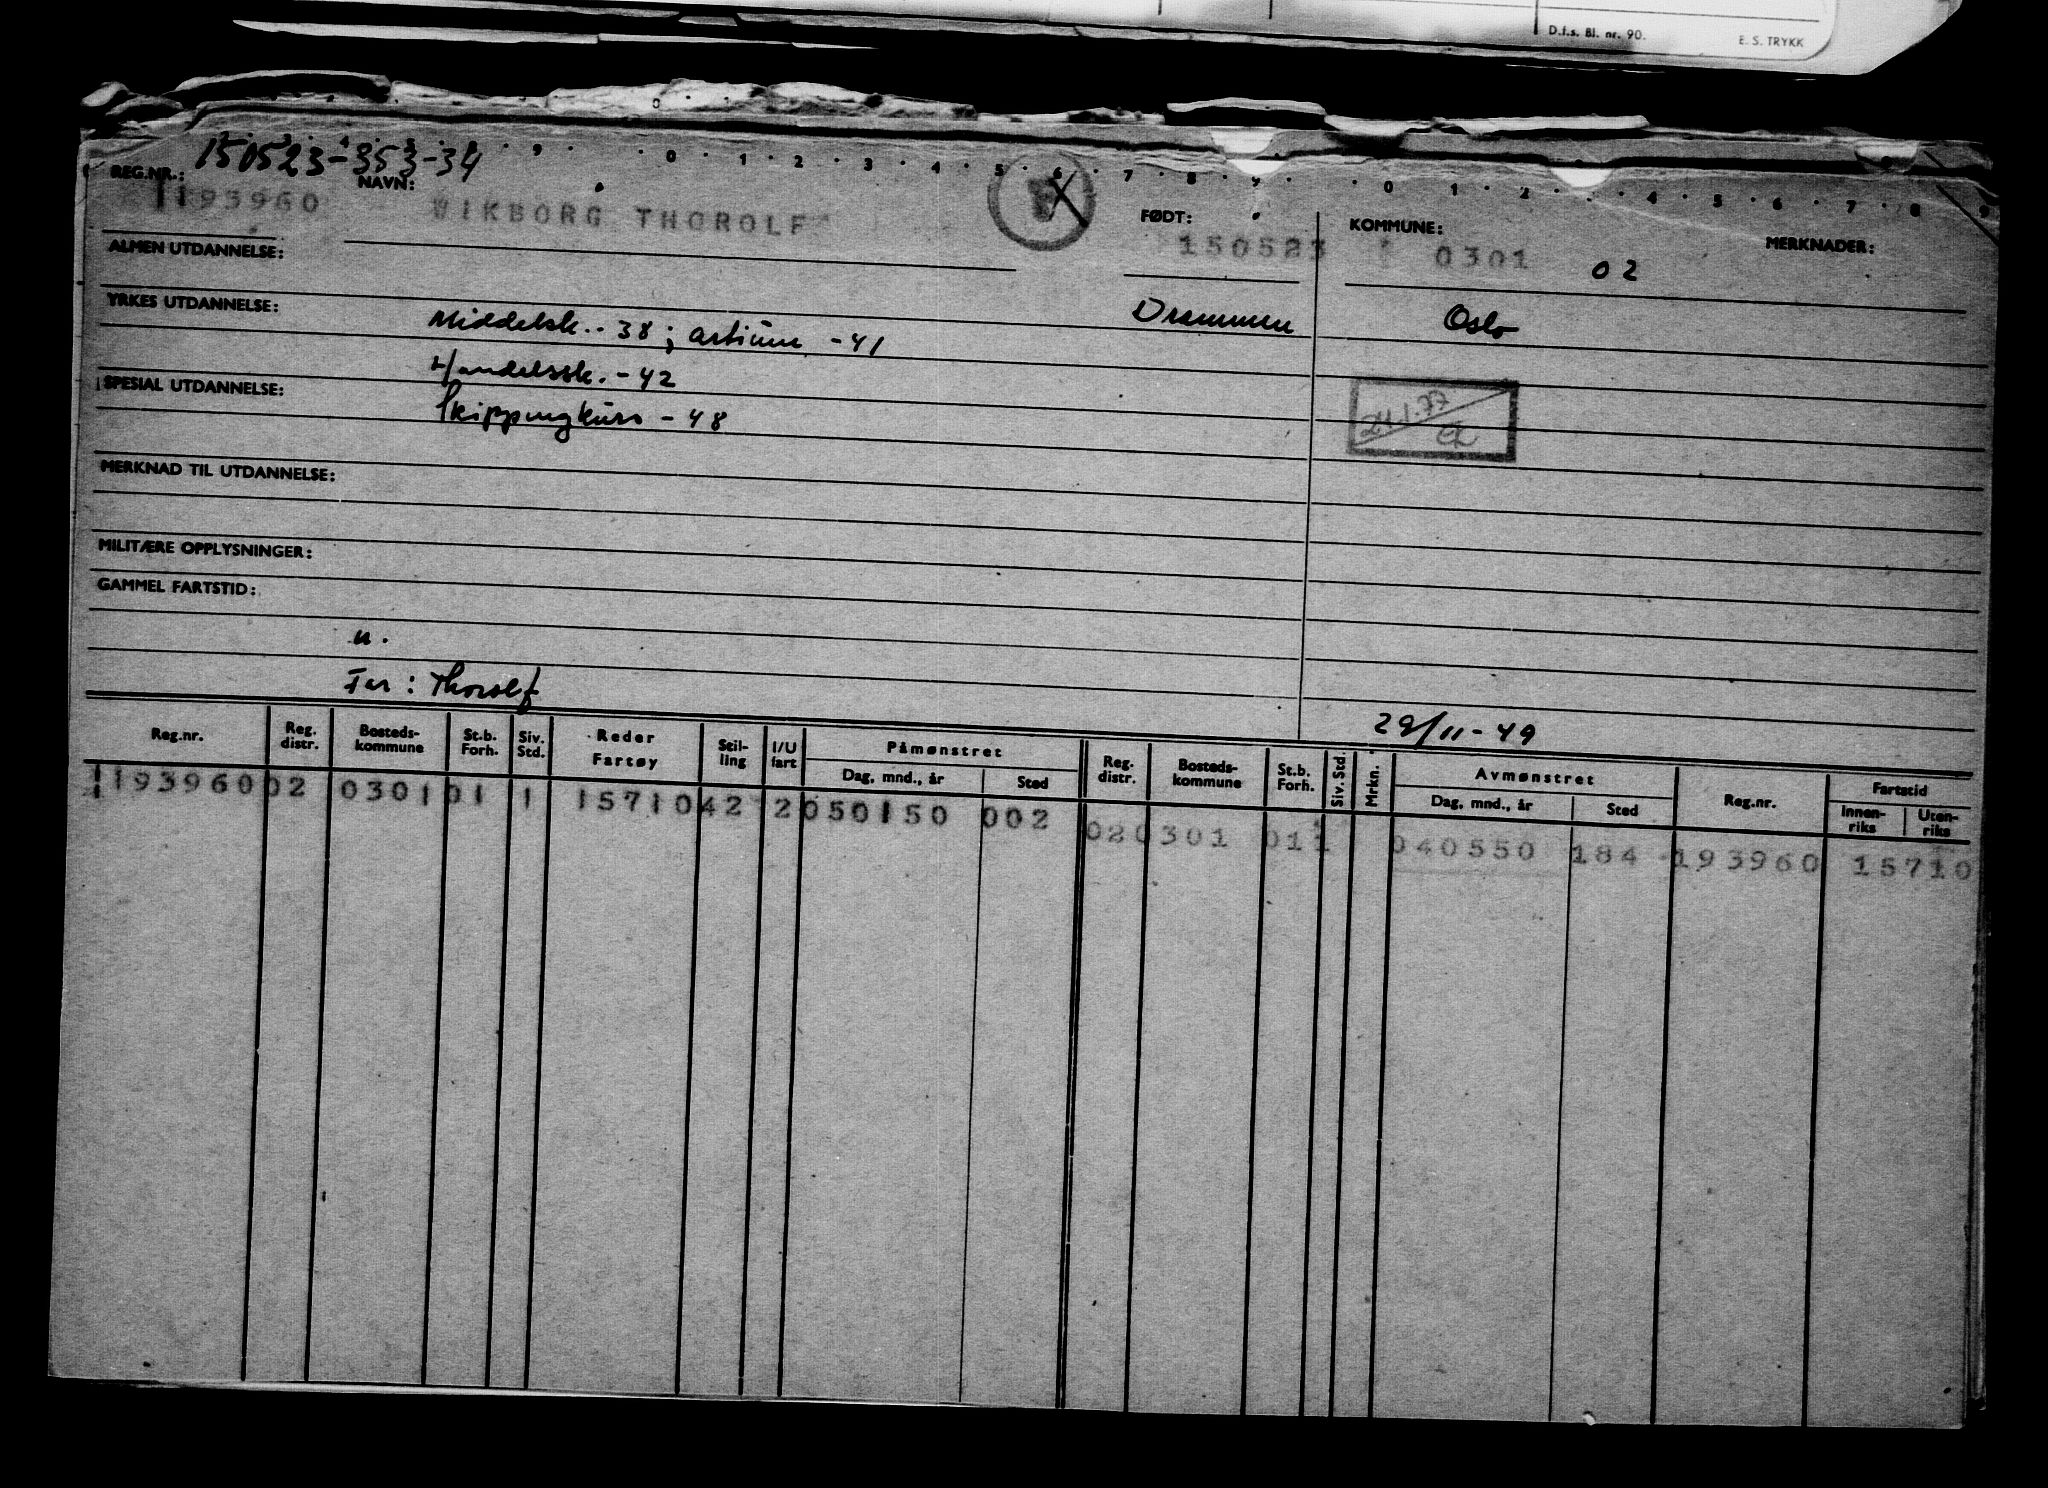 D.f.s. Bl. nr. 90. E. S. TRYKK
150523-353-34
REG.NR.: NAVN: FØDT: KOMMUNE: MERKNADER:
193960 WIKBORG THOROLF 150523 0301 02
ALMEN UTDANNELSE:
YRKES UTDANNELSE: Middelsk. - 38; artium - 41 Drammen Oslo
Handelssk. - 42
SPESIAL UTDANNELSE: Skippingkurs - 48
24.1.77
MERKNAD TIL UTDANNELSE:
MILITÆRE OPPLYSNINGER:
GAMMEL FARTSTID:
u.
Far: Thorolf
29/11-49
Reg.nr. Reg. distr. Bosteds-kommune St.b. Forh. Siv. Std. Reder Fartøy Stil-ling I/U fart Påmønstret Dag, mnd., år Sted Reg. distr. Bosteds-kommune St.b. Forh. Siv. Std. Mrkn. Avmønstret Dag, mnd., år Sted Reg.nr. Fartstid Innen-riks Uten-riks
193960 02 0301 01 1 15710 42 2 050150 002
02 0301 01 1 040550 184 193960 15710